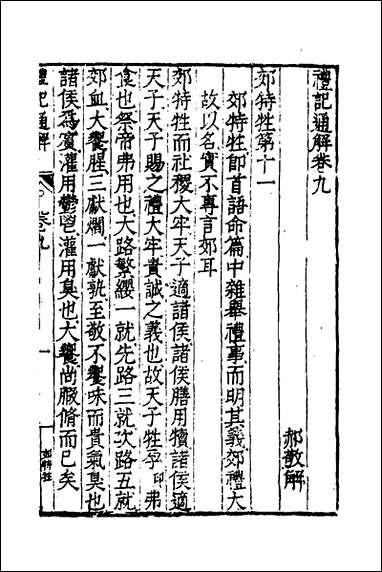 禮記通解卷九
郝敬解
郊特牲第十一
郊特牲即首語命篇中雜舉禮事而明其義郊禮大
故以名實不專言郊耳
郊特牲而社稷大牢天子適諸侯諸侯膳用犢諸侯適
天子天子賜之禮大牢貴誠之義也故天子牲孕弗
食也祭帝弗用也大路繁纓一就先路三就次路五就
郊血大饗腥三獻爓一獻孰至敬不饗味而貴氣臭也
諸侯為賓灌用鬱鬯灌用臭也大饗尚腶脩而已矣
禮記通解
卷九
一
郊特牲